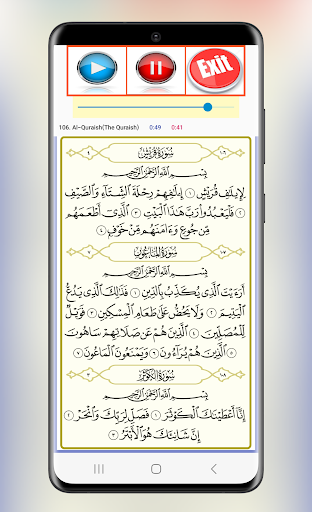 Exit
106. Al-Quraish(The Quraish) 0:49 0:41
سُورَةُ قُرَيْشٍ
بِسْمِ ٱللَّهِ ٱلرَّحْمَٰنِ ٱلرَّحِيمِ
لِإِيلَٰفِ قُرَيْشٍ ١ إِۦلَٰفِهِمْ رِحْلَةَ ٱلشِّتَآءِ وَٱلصَّيْفِ
٢ فَلْيَعْبُدُوا۟ رَبَّ هَٰذَا ٱلْبَيْتِ ٣ ٱلَّذِىٓ أَطْعَمَهُم
مِّن جُوعٍ وَءَامَنَهُم مِّنْ خَوْفٍۭ ٤
سُورَةُ المَاعُونِ
بِسْمِ ٱللَّهِ ٱلرَّحْمَٰنِ ٱلرَّحِيمِ
أَرَءَيْتَ ٱلَّذِى يُكَذِّبُ بِٱلدِّينِ ١ فَذَٰلِكَ ٱلَّذِى يَدُعُّ
ٱلْيَتِيمَ ٢ وَلَا يَحُضُّ عَلَىٰ طَعَامِ ٱلْمِسْكِينِ ٣ فَوَيْلٌ
لِّلْمُصَلِّينَ ٤ ٱلَّذِينَ هُمْ عَن صَلَاتِهِمْ سَاهُونَ
٥ ٱلَّذِينَ هُمْ يُرَآءُونَ ٦ وَيَمْنَعُونَ ٱلْمَاعُونَ ٧
سُورَةُ الكَوْثَرِ
بِسْمِ ٱللَّهِ ٱلرَّحْمَٰنِ ٱلرَّحِيمِ
إِنَّآ أَعْطَيْنَٰكَ ٱلْكَوْثَرَ ١ فَصَلِّ لِرَبِّكَ وَٱنْحَرْ ٢
إِنَّ شَانِئَكَ هُوَ ٱلْأَبْتَرُ ٣